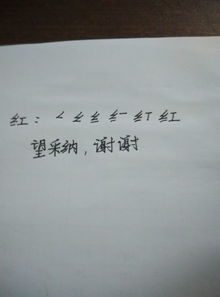 红：𠃋 纟 纟 纟一 纟丅 红
望采纳，谢谢